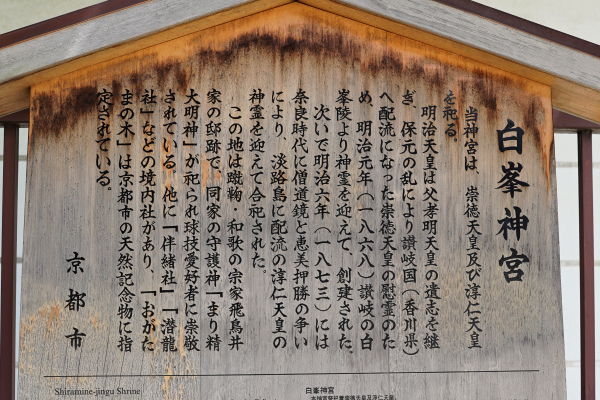 白峯神宮
当神宮は、崇徳天皇及び淳仁天皇
を祀る。
明治天皇は父孝明天皇の遺志を継
ぎ、保元の乱により讃岐国（香川県）
へ配流になった崇徳天皇の慰霊のた
め、明治元年（一八六八）讃岐の白
峯陵より神霊を迎えて、創建された。
次いで明治六年（一八七三）には
奈良時代に僧道鏡と恵美押勝の争い
により、淡路島に配流の淳仁天皇の
神霊を迎えて合祀された。
この地は蹴鞠・和歌の宗家飛鳥井
家の邸跡で、同家の守護神「まり精
大明神」が祀られ球技愛好者に崇敬
されている。他に「伴緒社」「潜龍
社」などの境内社があり、「おがた
まの木」は京都市の天然記念物に指
定されている。
京都市
Shiramine-jingu Shrine
白峯神宮